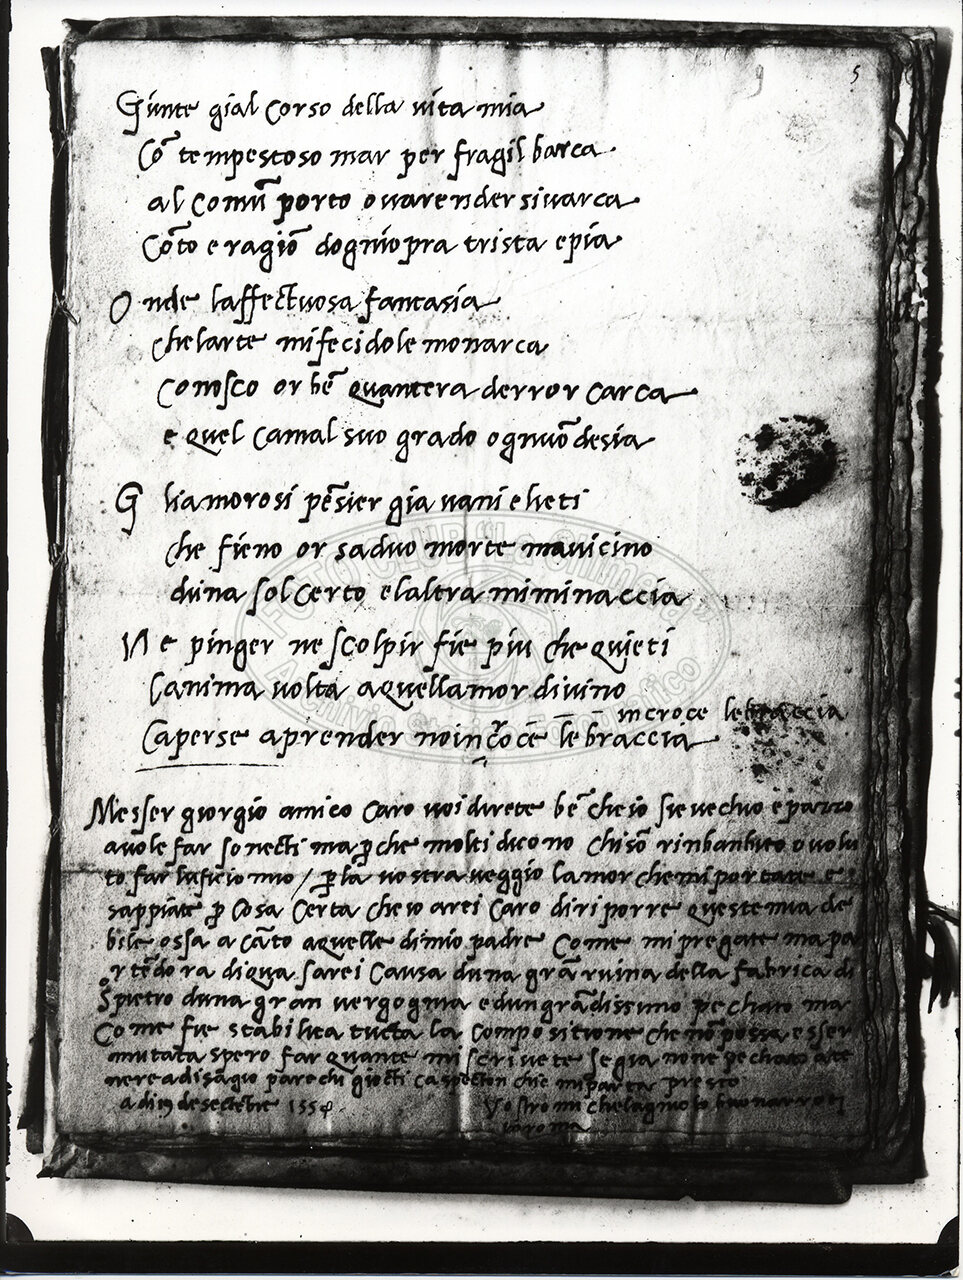 5
Giunte gial corso della vita mia
cō tempestoso mar per fragil barca
al comū porto ovarender sivarca
cōto e ragiō dogniopra trista epia
Onde laffectuosa fantasia
chelarte mifecidole monarca
conosco or bē quantera derror carca
e quel camal suo grado ognuō desia
Gliamorosi pēsier gia vani elieti
che fieno or saduo morte mavicino
duna sol certo elaltra miminaccia
Ne pinger ne scolpir fie piu che quieti
lanima volta aquellamor divino
incroce lebraccia
caperse aprender noi ī croce le braccia
Messer giorgio amico caro voi direte bē cheio sie vechio e pazzo
avole far sonecti ma p̄che molti dicono chisō rinbanbito o volu
to far luficio mio / p̄ la vostra veggio lamor chemi portate e
sappiate p̄ cosa certa cheio arei caro diriporre queste mia de
bile ossa a cāto aquelle dimio padre come mi pregate ma pa
rtēdo ra diqua sarei causa duna grā rvina della fabrica di
s pietro duna gran vergognia e dun grādissimo pechato ma
come fie stabilita tucta la compositione che nō possa esser
mutata spero far quante mi scrivete se gia none pechato atte
nere adisagio parechi giocti caspecton che mi parta presto
adi 19 de sectēbre 1554
Vostro michelagniolo buonarroti
in roma
FOTO CLUB "La Chimera"
Archivio Storico Fotografico